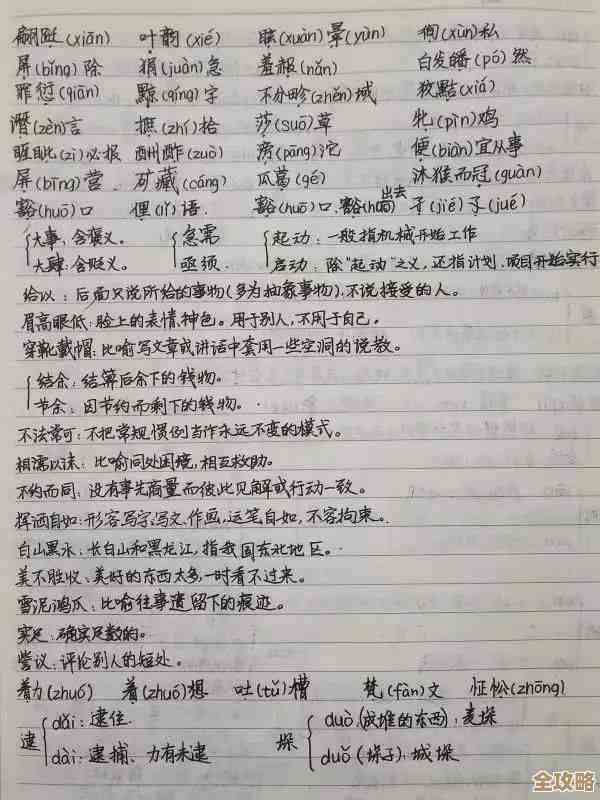 翩跹(xiān) 叶韵(xié) 眩(xuàn)晕(yùn) 徇(xùn)私
屏(bǐng)除 狷(juàn)急 羞赧(nǎn) 白发皤(pó)然
罪愆(qiān) 黥(qíng)字 不分畛(zhěn)域 狡黠(xiá)
谮(zèn)言 摭(zhí)拾 莎(suō)草 牝(pìn)鸡
睚眦(zì)必报 酬酢(zuò) 滂(pāng)沱 便(biàn)宜从事
屏(bīng)营 矿藏(cáng) 瓜葛(gé) 沐猴而冠(guàn)
豁(huō)口 俚(lǐ)语 豁(huō)口、豁(huō)出去 孑(jié)孓(jué)
大事:含褒义。 急需 起动:一般指机械开始工作
大肆:含贬义。 亟须 启动:除"起动"之义,还指计划、项目开始实行
给以:后面只说所给的事物(多为抽象事物),不说接受的人。
眉高眼低:脸上的表情、神色。用于别人,不用于自己。
穿靴戴帽:比喻写文章或讲话中套用一些空洞的说教。
结余:结算后余下的钱物。
节余:因节约而剩下的钱物。
不法常可:不把常规、惯例当作永远不变的模式。
相濡以沫:比喻同处困境,相互救助。
不约而同:没有事先商量而彼此见解或行动一致。
挥洒自如:形容写字、写文、作画,运笔自如,不容拘束。
白山黑水:长白山和黑龙江,指我国东北地区。
美不胜收:美好的东西太多,一时看不过来。
雪泥鸿爪:比喻往事遗留下的痕迹。
实足:确实足数的。
訾议:评论别人的短处。
着力(zhuó) 着(zhuó)想 吐(tǔ)槽 梵(fàn)文 怔忪(zhōng)
逮 dǎi:逮住. 垛 duò(成堆的东西):麦垛
dài:逮捕、力有未逮 duǒ(垛子):城垛
全攻略